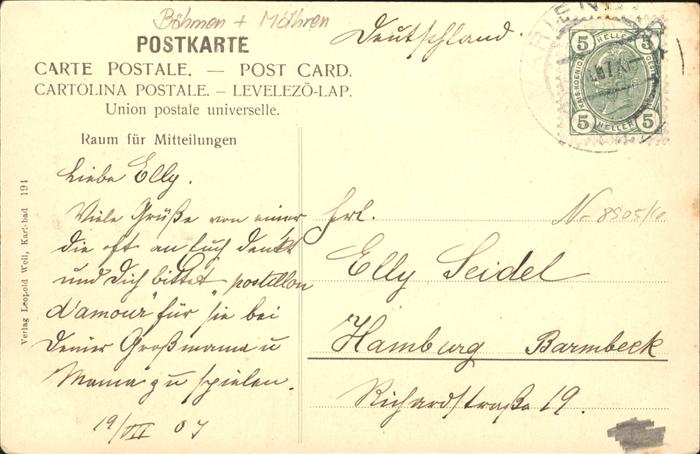 Böhmen + Mähren
POSTKARTE
Deutschland.
CARTE POSTALE. — POST CARD.
CARTOLINA POSTALE. – LEVELEZŐ-LAP.
Union postale universelle.
Raum für Mitteilungen
Liebe Elly.
Viele Grüße von einer
die oft an Euch denkt
und Dich bittet „postillon
d'amour" für sie bei
Deiner Großmama u
Mama zu spielen.
19/VII 07
Verlag Leopold Weil, Karlsbad 191
MARIENB
5 HELLER 5
5 HELLER 5
N- 8905/10
Frl.
Elly Seidel
Hamburg Barmbeck
Richardstraße 19.